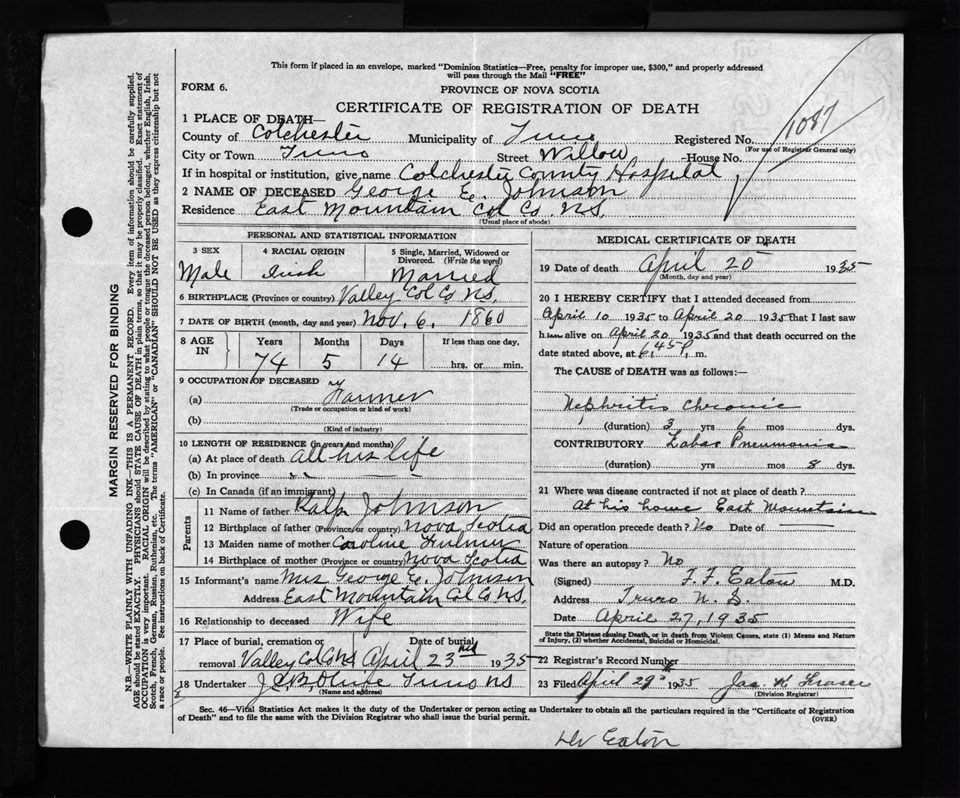 This form if placed in an envelope, marked "Dominion Statistics—Free, penalty for improper use, $300," and properly addressed
will pass through the Mail "FREE"
FORM 6.
PROVINCE OF NOVA SCOTIA
CERTIFICATE OF REGISTRATION OF DEATH
1 PLACE OF DEATH—
County of Colchester Municipality of Truro Registered No. 1087
(For use of Registrar General only)
City or Town Truro Street Willow -House No.
If in hospital or institution, give name Colchester County Hospital
2 NAME OF DECEASED George E. Johnson
Residence East Mountain Col Co. N.S.
(Usual place of abode)
PERSONAL AND STATISTICAL INFORMATION
3 SEX 4 RACIAL ORIGIN 5 Single, Married, Widowed or
Divorced. (Write the word)
Male Irish Married
6 BIRTHPLACE (Province or country) Valley Col Co N.S.
7 DATE OF BIRTH (month, day and year) Nov. 6. 1860
8 AGE IN Years Months Days If less than one day.
74 5 14 hrs. or min.
9 OCCUPATION OF DECEASED
(a) Farmer
(Trade or occupation or kind of work)
(b)
(Kind of industry)
10 LENGTH OF RESIDENCE (in years and months)
(a) At place of death all his life
(b) In province
(c) In Canada (if an immigrant)
Parents
11 Name of father Ralp Johnson
12 Birthplace of father (Province or country) Nova Scotia
13 Maiden name of mother Caroline
14 Birthplace of mother (Province or country) Nova Scotia
15 Informant's name Mrs George E. Johnson
Address East Mountain Col Co N.S.
16 Relationship to deceased Wife
17 Place of burial, cremation or Date of burial
removal Valley Col Co N.S April 23rd 1935
18 Undertaker Truro N.S
(Name and address)
MEDICAL CERTIFICATE OF DEATH
19 Date of death April 20 1935
(Month, day and year)
20 I HEREBY CERTIFY that I attended deceased from
April 10 1935 to April 20 1935 that I last saw
him alive on April 20 1935 and that death occurred on the
date stated above, at m.
The CAUSE of DEATH was as follows:—
Nephritis Chronic
(duration) 3 yrs 6 mos dys.
CONTRIBUTORY Lobar Pneumonia
(duration) yrs mos 8 dys.
21 Where was disease contracted if not at place of death?
At his home East Mountain
Did an operation precede death? No Date of
Nature of operation
Was there an autopsy? No
(Signed) F. F. Eaton M.D.
Address Truro N. S.
Date April 27, 1935
State the Disease causing Death, or in death from Violent Causes, state (1) Means and Nature
of Injury, (2) whether Accidental, Suicidal or Homicidal.
22 Registrar's Record Number
23 Filed April 29 1935 Jas. K. Fraser
(Division Registrar)
Sec. 46—Vital Statistics Act makes it the duty of the Undertaker or person acting as Undertaker to obtain all the particulars required in the "Certificate of Registration
of Death" and to file the same with the Division Registrar who shall issue the burial permit.
(OVER)
Dr Eaton
MARGIN RESERVED FOR BINDING
N.B.—WRITE PLAINLY WITH UNFADING INK—THIS IS A PERMANENT RECORD. Every item of information should be carefully supplied.
AGE should be stated EXACTLY. PHYSICIANS should STATE CAUSE OF DEATH in plain terms, so that it may be properly classified. Exact statement of
OCCUPATION is very important. RACIAL ORIGIN will be described by stating to what people or tongue the deceased person belonged, whether English, Irish,
Scotch, French, German, Russian, Ruthenian, etc. The terms "AMERICAN" or "CANADIAN" SHOULD NOT BE USED as they express citizenship but not
a race or people. See instructions on back of Certificate.